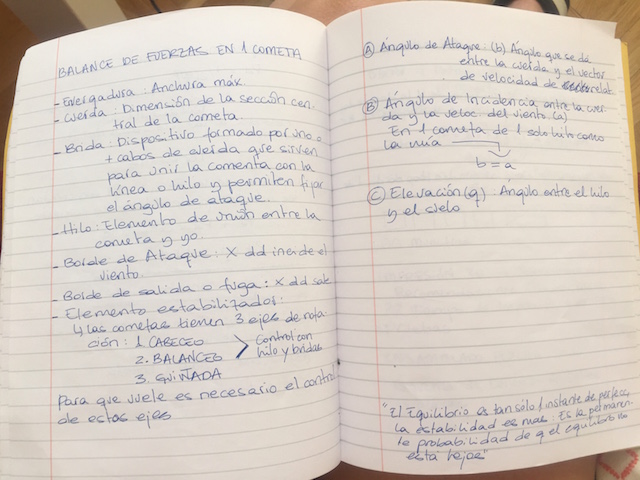 BALANCE DE FUERZAS EN 1 COMETA
- Envergadura: Anchura máx.
- Cuerda: Dimensión de la sección cen-
tral de la cometa.
- Brida: Dispositivo formado por uno o
+ cabos de cuerda que sirven
para unir la comenta con la
línea o hilo y permiten fijar
el ángulo de ataque.
- Hilo: Elemento de unión entre la
cometa y yo.
- Borde de Ataque: X dd incide el
viento.
- Borde de salida o fuga: X dd sale
- Elemento estabilizador:
↳ las cometas tienen 3 ejes de rota-
ción: 1 CABECEO
2. BALANCEO > Control con
hilo y bridas
3. GUIÑADA
Para que vuele es necesario el control
de estos ejes
Ⓐ Ángulo de Ataque: (b) Ángulo que se da
entre la cuerda y el vector
de velocidad de relat.
Ⓑ Ángulo de Incidencia entre la cuer-
da y la veloc. del viento. (a)
En 1 cometa de 1 solo hilo como
la mía
b = a
Ⓒ Elevación (q): Angulo entre el hilo
y el suelo
"El Equilibrio es tan sólo 1 instante de perfecc.
la estabilidad es mas. Es la permanen-
te probabilidad de q el equilibrio no
está lejos"